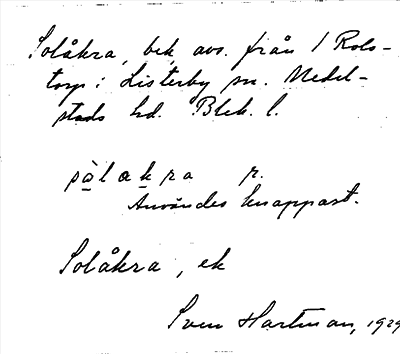 Solåkra, bek. avs. från 1 Rols-
torp i Listerby sn. Medel-
stads hd. Blek. l.
sòlakra r.
Användes knappast.
Solåkra, ek
Sven Hartman, 1929